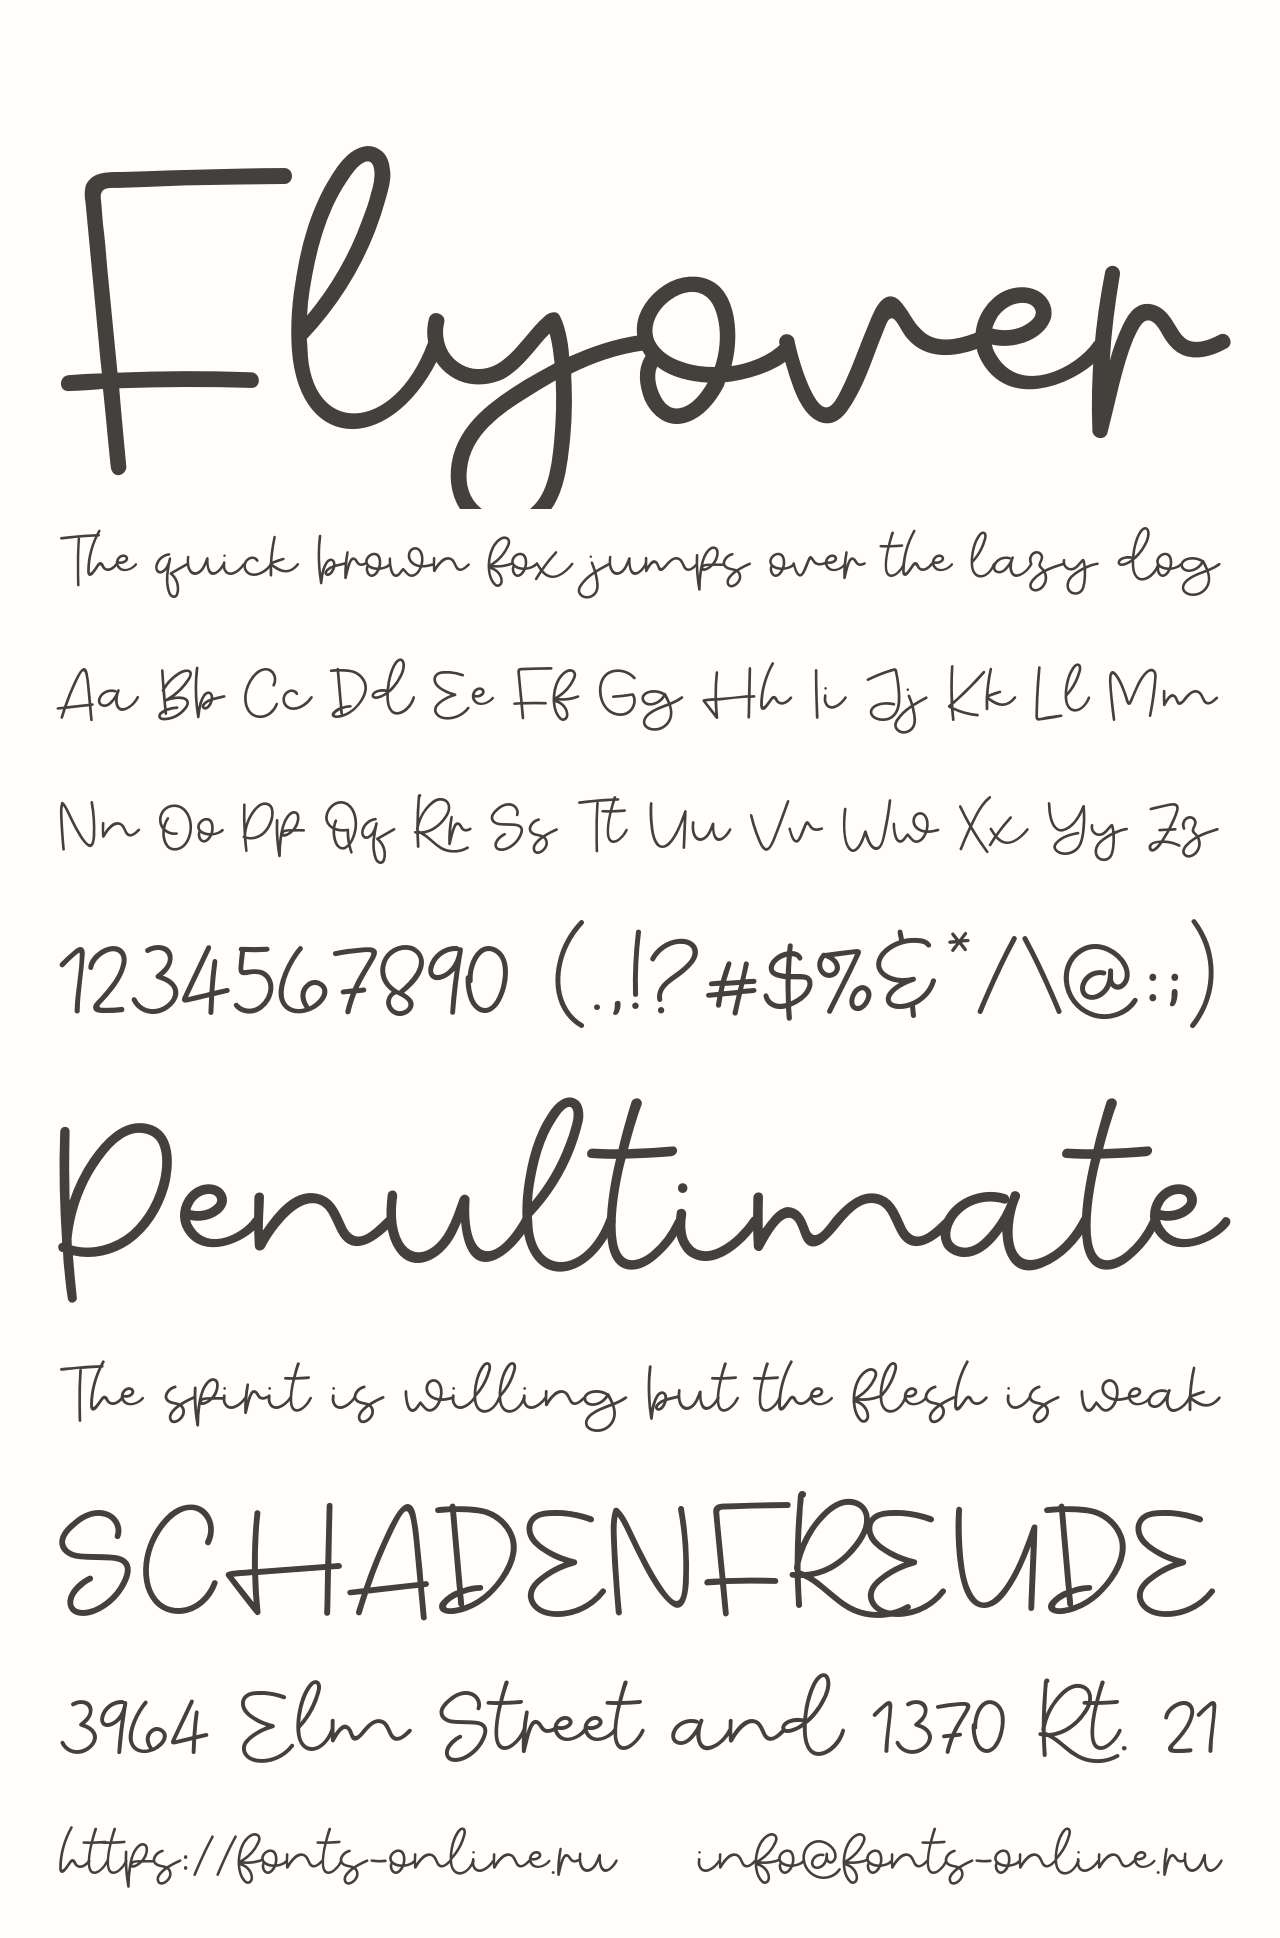 Flyover
The quick brown fox jumps over the lazy dog
Aa Bb Cc Dd Ee Ff Gg Hh Ii Jj Kk Ll Mm
Nn Oo Pp Qq Rr Ss Tt Uu Vv Ww Xx Yy Zz
1234567890 (.,!?#$%&*/\@:;)
Penultimate
The spirit is willing but the flesh is weak
SCHADENFREUDE
3964 Elm Street and 1370 Rt. 21
https://fonts-online.ru info@fonts-online.ru